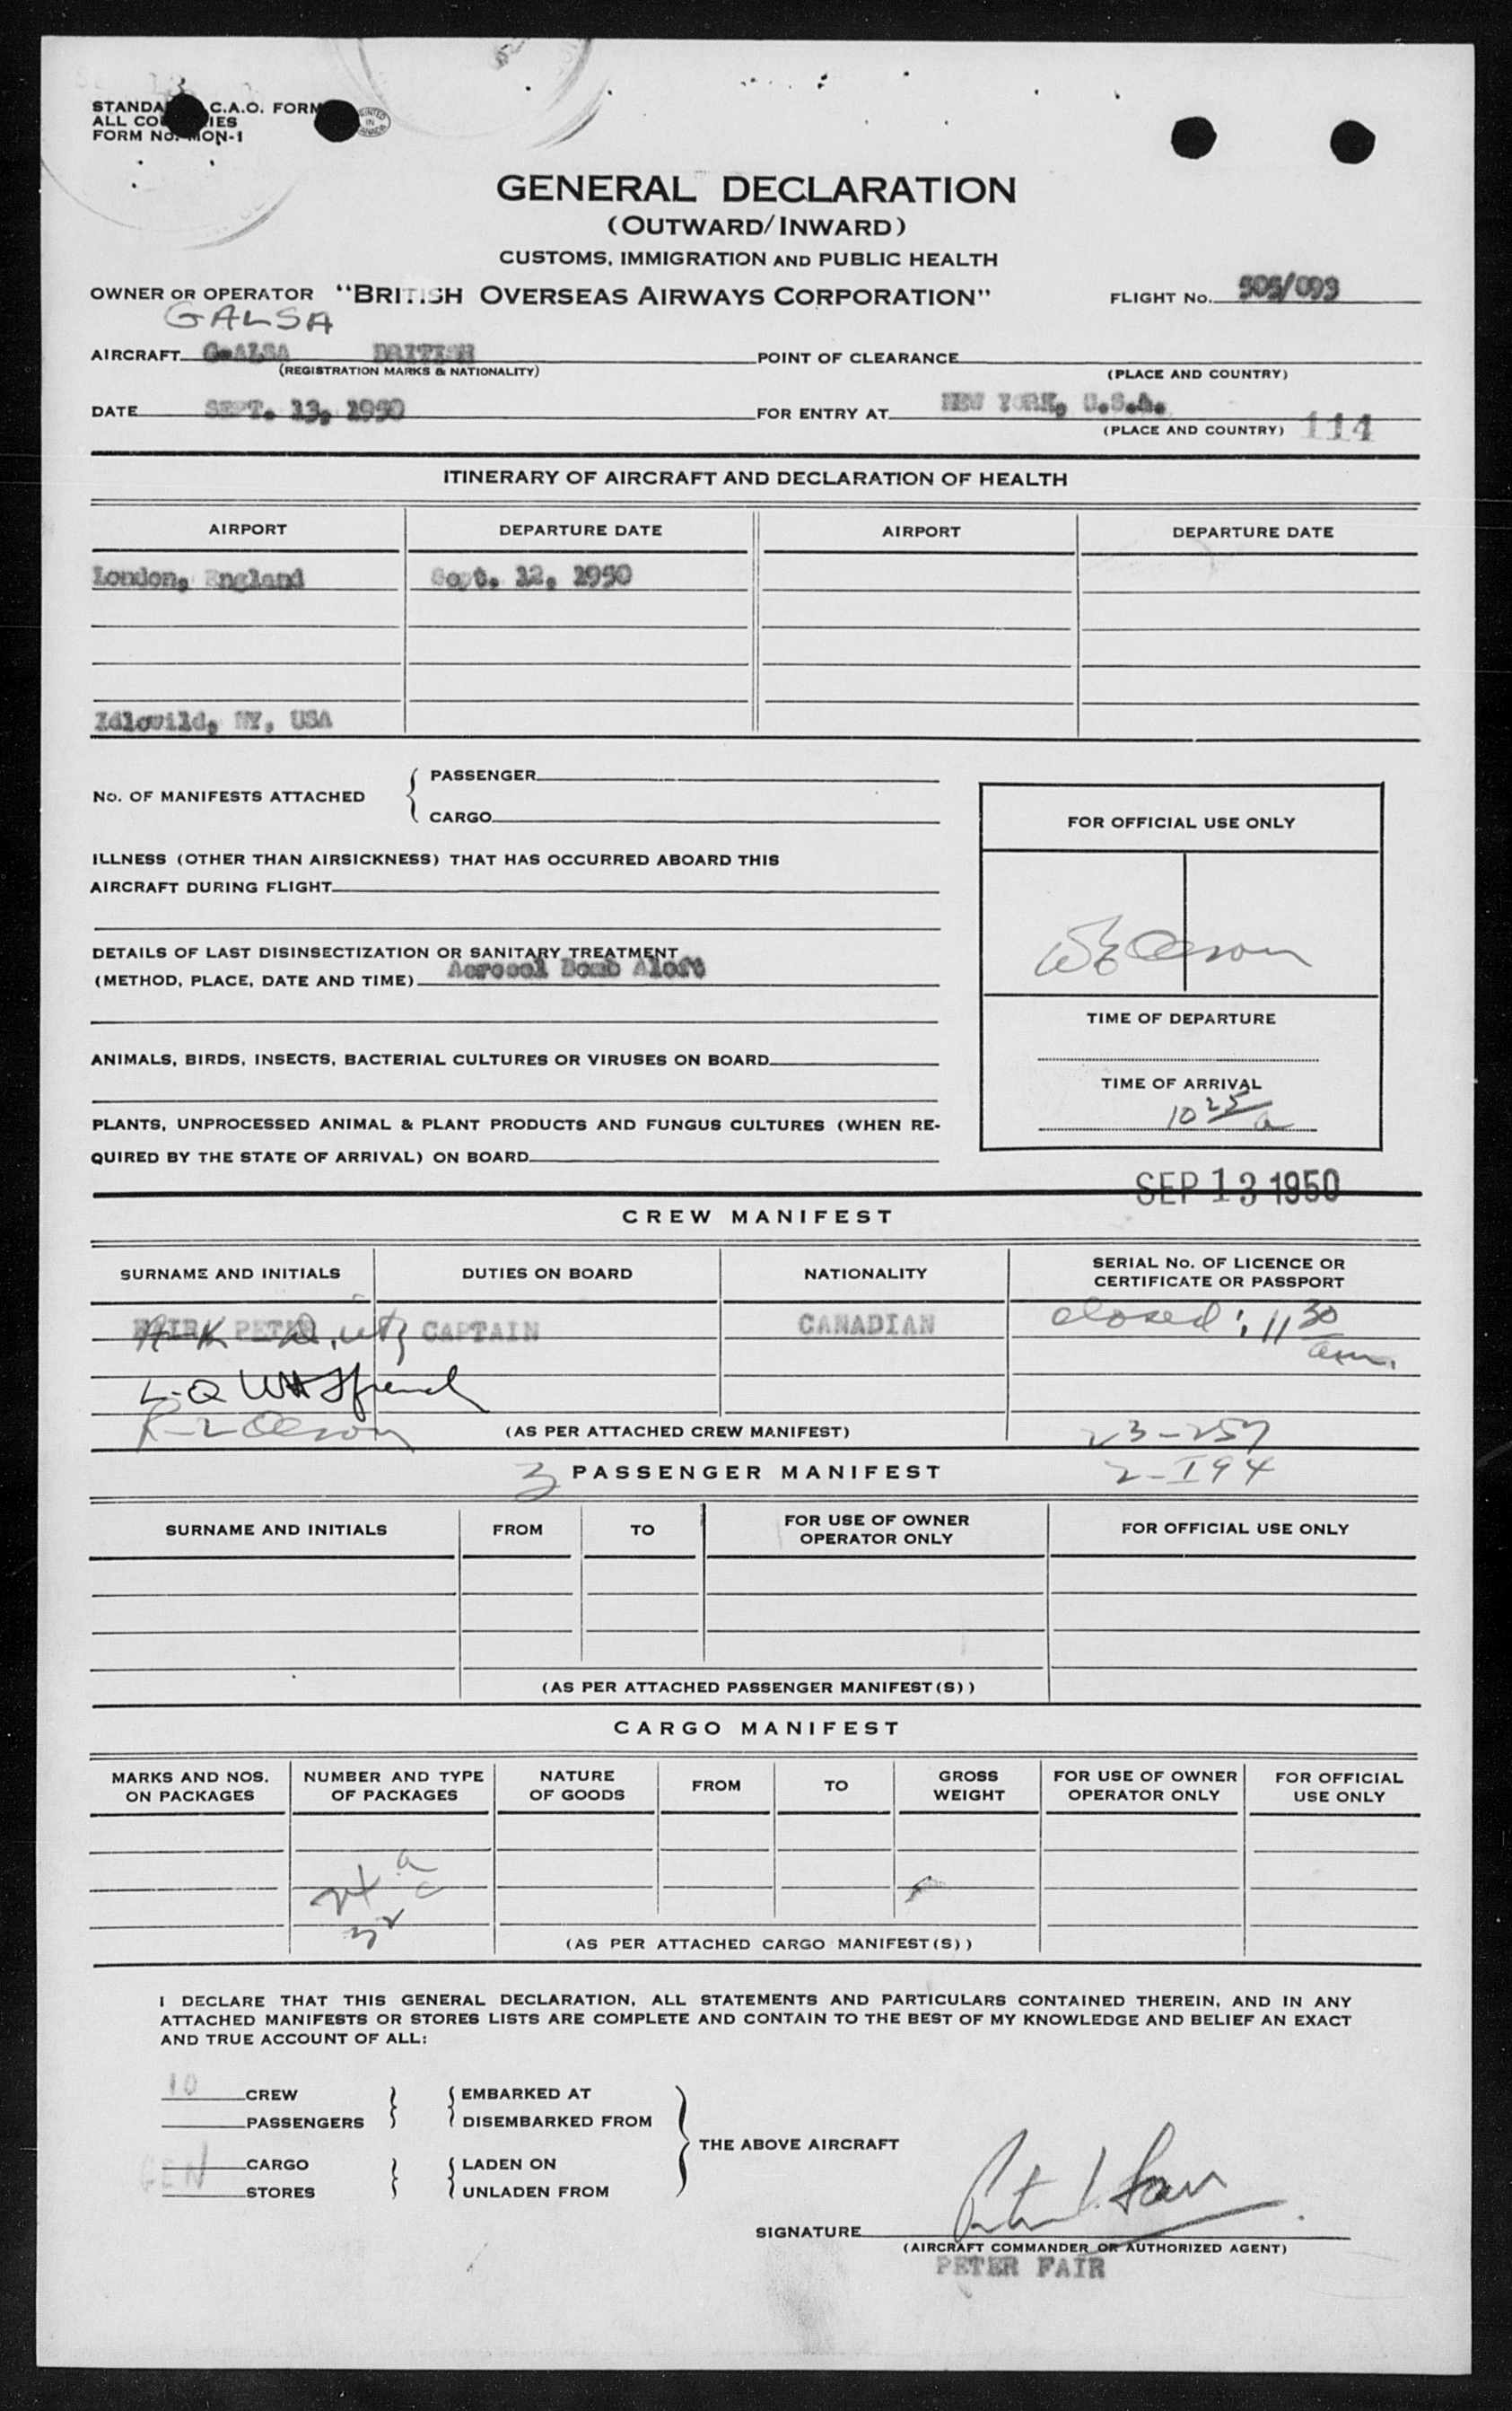 STANDA C.A.O. FORM
ALL CO IES
FORM No. MON-1
PRINTED IN CANADA
GENERAL DECLARATION
(OUTWARD/INWARD)
CUSTOMS, IMMIGRATION AND PUBLIC HEALTH
OWNER OR OPERATOR "BRITISH OVERSEAS AIRWAYS CORPORATION" FLIGHT No. 505/093
GALSA
AIRCRAFT G-ALSA BRITISH POINT OF CLEARANCE
(REGISTRATION MARKS & NATIONALITY) (PLACE AND COUNTRY)
DATE SEPT. 13, 1950 FOR ENTRY AT NEW YORK, U.S.A.
(PLACE AND COUNTRY) 114
ITINERARY OF AIRCRAFT AND DECLARATION OF HEALTH
AIRPORT DEPARTURE DATE AIRPORT DEPARTURE DATE
London, England Sept. 12, 1950
Idlewild, NY, USA
No. OF MANIFESTS ATTACHED { PASSENGER
CARGO
FOR OFFICIAL USE ONLY
ILLNESS (OTHER THAN AIRSICKNESS) THAT HAS OCCURRED ABOARD THIS
AIRCRAFT DURING FLIGHT
DETAILS OF LAST DISINSECTIZATION OR SANITARY TREATMENT
(METHOD, PLACE, DATE AND TIME) Aerosol Bomb Aloft
TIME OF DEPARTURE
ANIMALS, BIRDS, INSECTS, BACTERIAL CULTURES OR VIRUSES ON BOARD
TIME OF ARRIVAL
10 25 a
PLANTS, UNPROCESSED ANIMAL & PLANT PRODUCTS AND FUNGUS CULTURES (WHEN RE-
QUIRED BY THE STATE OF ARRIVAL) ON BOARD
SEP 13 1950
CREW MANIFEST
SURNAME AND INITIALS DUTIES ON BOARD NATIONALITY SERIAL No. OF LICENCE OR
CERTIFICATE OR PASSPORT
FAIR, PETER CAPTAIN CANADIAN closed: 11 30
am.
L-Q
(AS PER ATTACHED CREW MANIFEST) 23-257
3 PASSENGER MANIFEST 2-I94
SURNAME AND INITIALS FROM TO FOR USE OF OWNER
OPERATOR ONLY FOR OFFICIAL USE ONLY
(AS PER ATTACHED PASSENGER MANIFEST(S))
CARGO MANIFEST
MARKS AND NOS.
ON PACKAGES NUMBER AND TYPE
OF PACKAGES NATURE
OF GOODS FROM TO GROSS
WEIGHT FOR USE OF OWNER
OPERATOR ONLY FOR OFFICIAL
USE ONLY
24 a
32 c
(AS PER ATTACHED CARGO MANIFEST(S))
I DECLARE THAT THIS GENERAL DECLARATION, ALL STATEMENTS AND PARTICULARS CONTAINED THEREIN, AND IN ANY
ATTACHED MANIFESTS OR STORES LISTS ARE COMPLETE AND CONTAIN TO THE BEST OF MY KNOWLEDGE AND BELIEF AN EXACT
AND TRUE ACCOUNT OF ALL:
10 CREW EMBARKED AT
PASSENGERS DISEMBARKED FROM
THE ABOVE AIRCRAFT
GEN CARGO LADEN ON
STORES UNLADEN FROM
SIGNATURE
(AIRCRAFT COMMANDER OR AUTHORIZED AGENT)
PETER FAIR